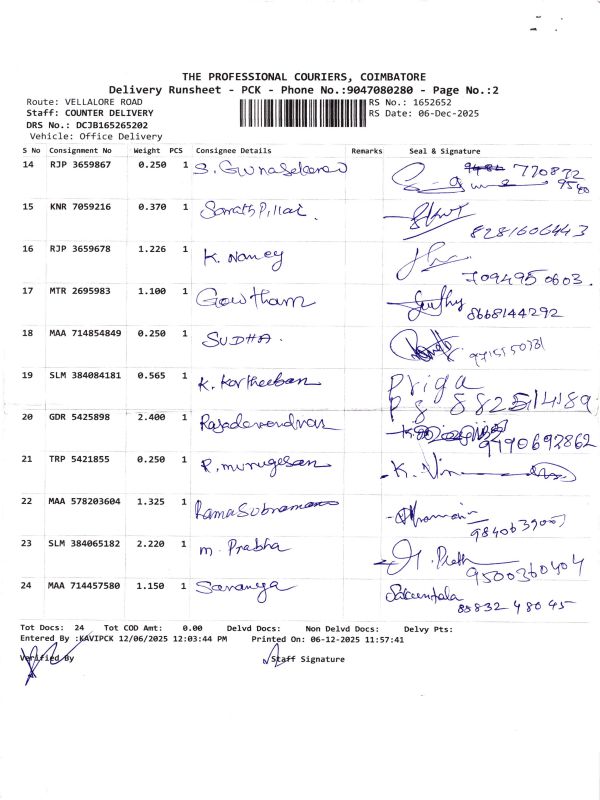 THE PROFESSIONAL COURIERS, COIMBATORE
Delivery Runsheet - PCK - Phone No.:9047080280 - Page No.:2
Route: VELLALORE ROAD RS No.: 1652652
Staff: COUNTER DELIVERY RS Date: 06-Dec-2025
DRS No.: DCJB165265202
Vehicle: Office Delivery
S No Consignment No Weight PCS Consignee Details Remarks Seal & Signature
14 RJP 3659867 0.250 1 S. Gunasekaran 770872
9580
15 KNR 7059216 0.370 1 Sarath Pillai.
8281606443
16 RJP 3659678 1.226 1 K. Nancy
7094950603.
17 MTR 2695983 1.100 1 Gowtham
8668144292
18 MAA 714854849 0.250 1 SUDHA.
19 SLM 384084181 0.565 1 K. Kartheeban Priga
20 GDR 5425898 2.400 1
9790692862
21 TRP 5421855 0.250 1 P. murugesan
22 MAA 578203604 1.325 1 Rama Subramani
23 SLM 384065182 2.220 1 m. Prabha
9500360404
24 MAA 714457580 1.150 1 Saranya Sakuntala
Tot Docs: 24 Tot COD Amt: 0.00 Delvd Docs: Non Delvd Docs: Delvy Pts:
Entered By :KAVIPCK 12/06/2025 12:03:44 PM Printed On: 06-12-2025 11:57:41
Verified By Staff Signature